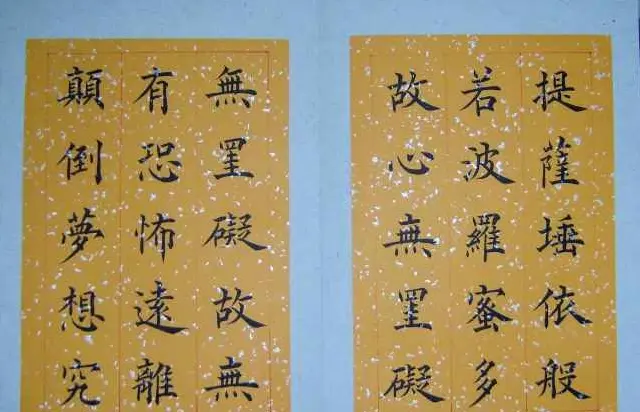 提薩埵依般
若波羅蜜多
故心無罣礙
無罣礙故無
有恐怖遠離
顛倒夢想究